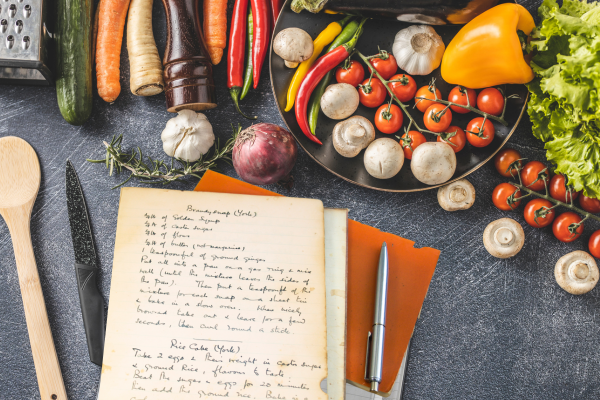 Brandysnap (York)
¼lb of Golden Syrup
¼lb of Castor sugar
¼lb of flour
¼lb of butter (not margarine)
1 teaspoonful of ground ginger
Put all into a pan on a gas ring & mix
well (until the mixture leaves the sides of
the pan). Then put a teaspoonful of the
mixture for each snap on a sheet tin
& bake in a slow oven. When nicely
browned take out & leave for a few
seconds, then curl round a stick
Rice Cake (York)
Take 2 eggs & their weight in castor sugar
& ground Rice, flavour to taste
Beat the sugar & eggs for 20 minutes
then add the ground rice. Bake in a